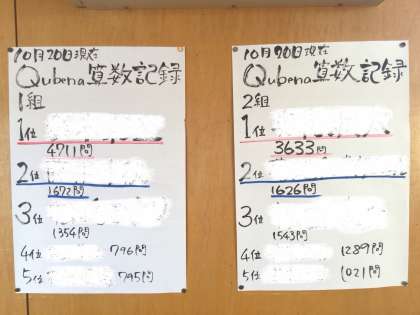 10月20日現在
Qubena算数記録
1組
1位
4711問
2位
1672問
3位
1354問
4位 796問
5位 795問
10月20日現在
Qubena算数記録
2組
1位
3633問
2位
1626問
3位
1543問
4位 1289問
5位 1021問